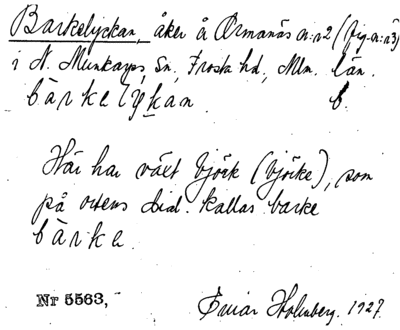 Barkelyckan, åker å Ormanäs n:r 2 (fig. n:r 3)
i N. Munkarps sn, Frosta hd, Mlm. län.
bàrkelỳkan. b.
Här har växt björk (björke), som
på ortens dial. kallas barke
bàrke.
Nr 5563, Einar Holmberg. 1927.